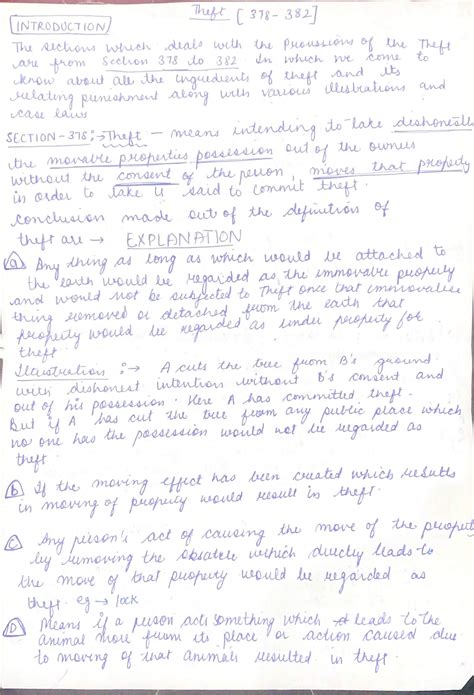 Theft [378-382]
INTRODUCTION
The sections which deals with the Provissions of the Theft
are from Section 378 to 382 In which we come to
know about all the ingredients of theft and its
relating punishment along with various illustrations and
case laws
SECTION-378:→Theft – means intending to take dishonestly
the movable properties possession out of the owners
without the consent of the person, moves that property
in order to take is said to commit theft.
Conclusion made out of the definition of
theft are → EXPLANATION
(a) Any thing as long as which would be attached to
the earth would be regarded as the immovable property
and would not be subjected to Theft once that immovable
thing removed or detached from the earth that
property would be regarded as under property for
theft
Illustration :→ A cuts the tree from B's ground
with dishonest intention without B's consent and
out of his possession. Here A has committed theft.
But if A has cut the tree from any public place which
no one has the possession would not be regarded as
theft.
(b) If the moving effect has been created which results
in moving of property would result in theft.
(C) Any person's act of causing the move of the property
by removing the obstacle which directly leads to
the move of that property would be regarded as
theft. eg → lock
(D) Means if a person acts something which leads to the
animal move from its place or action caused due
to moving of that animals resulted in theft.